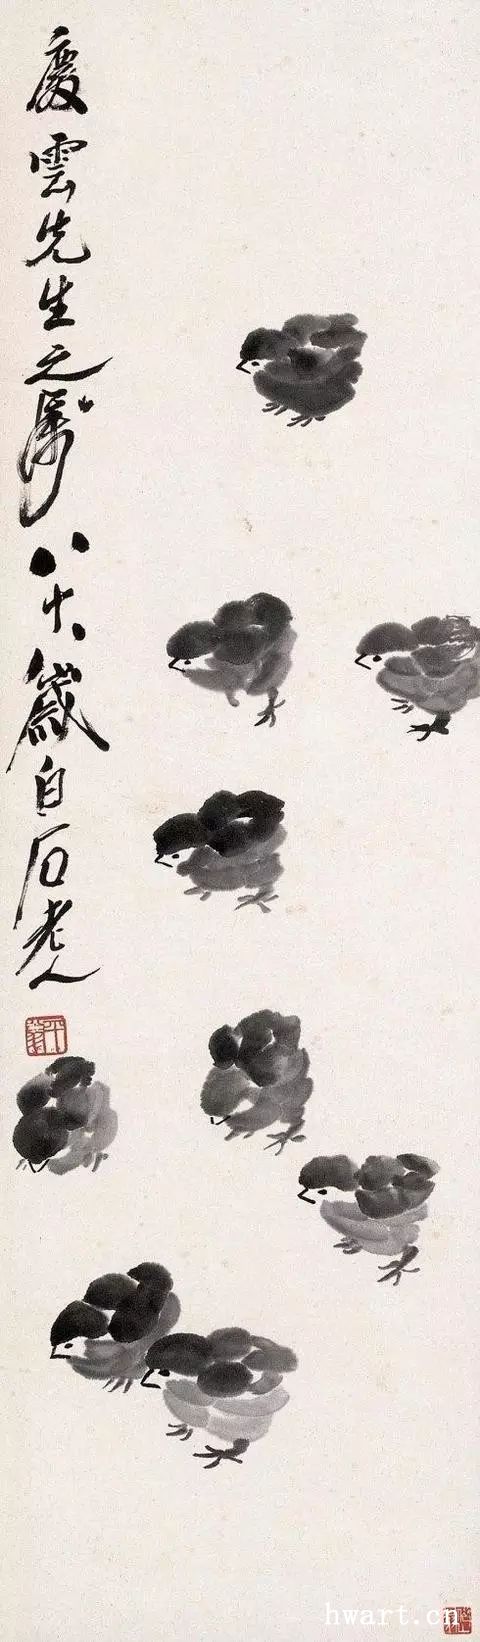 慶雲先生之屬八十八歲白石老人
平翁
hwart.cn